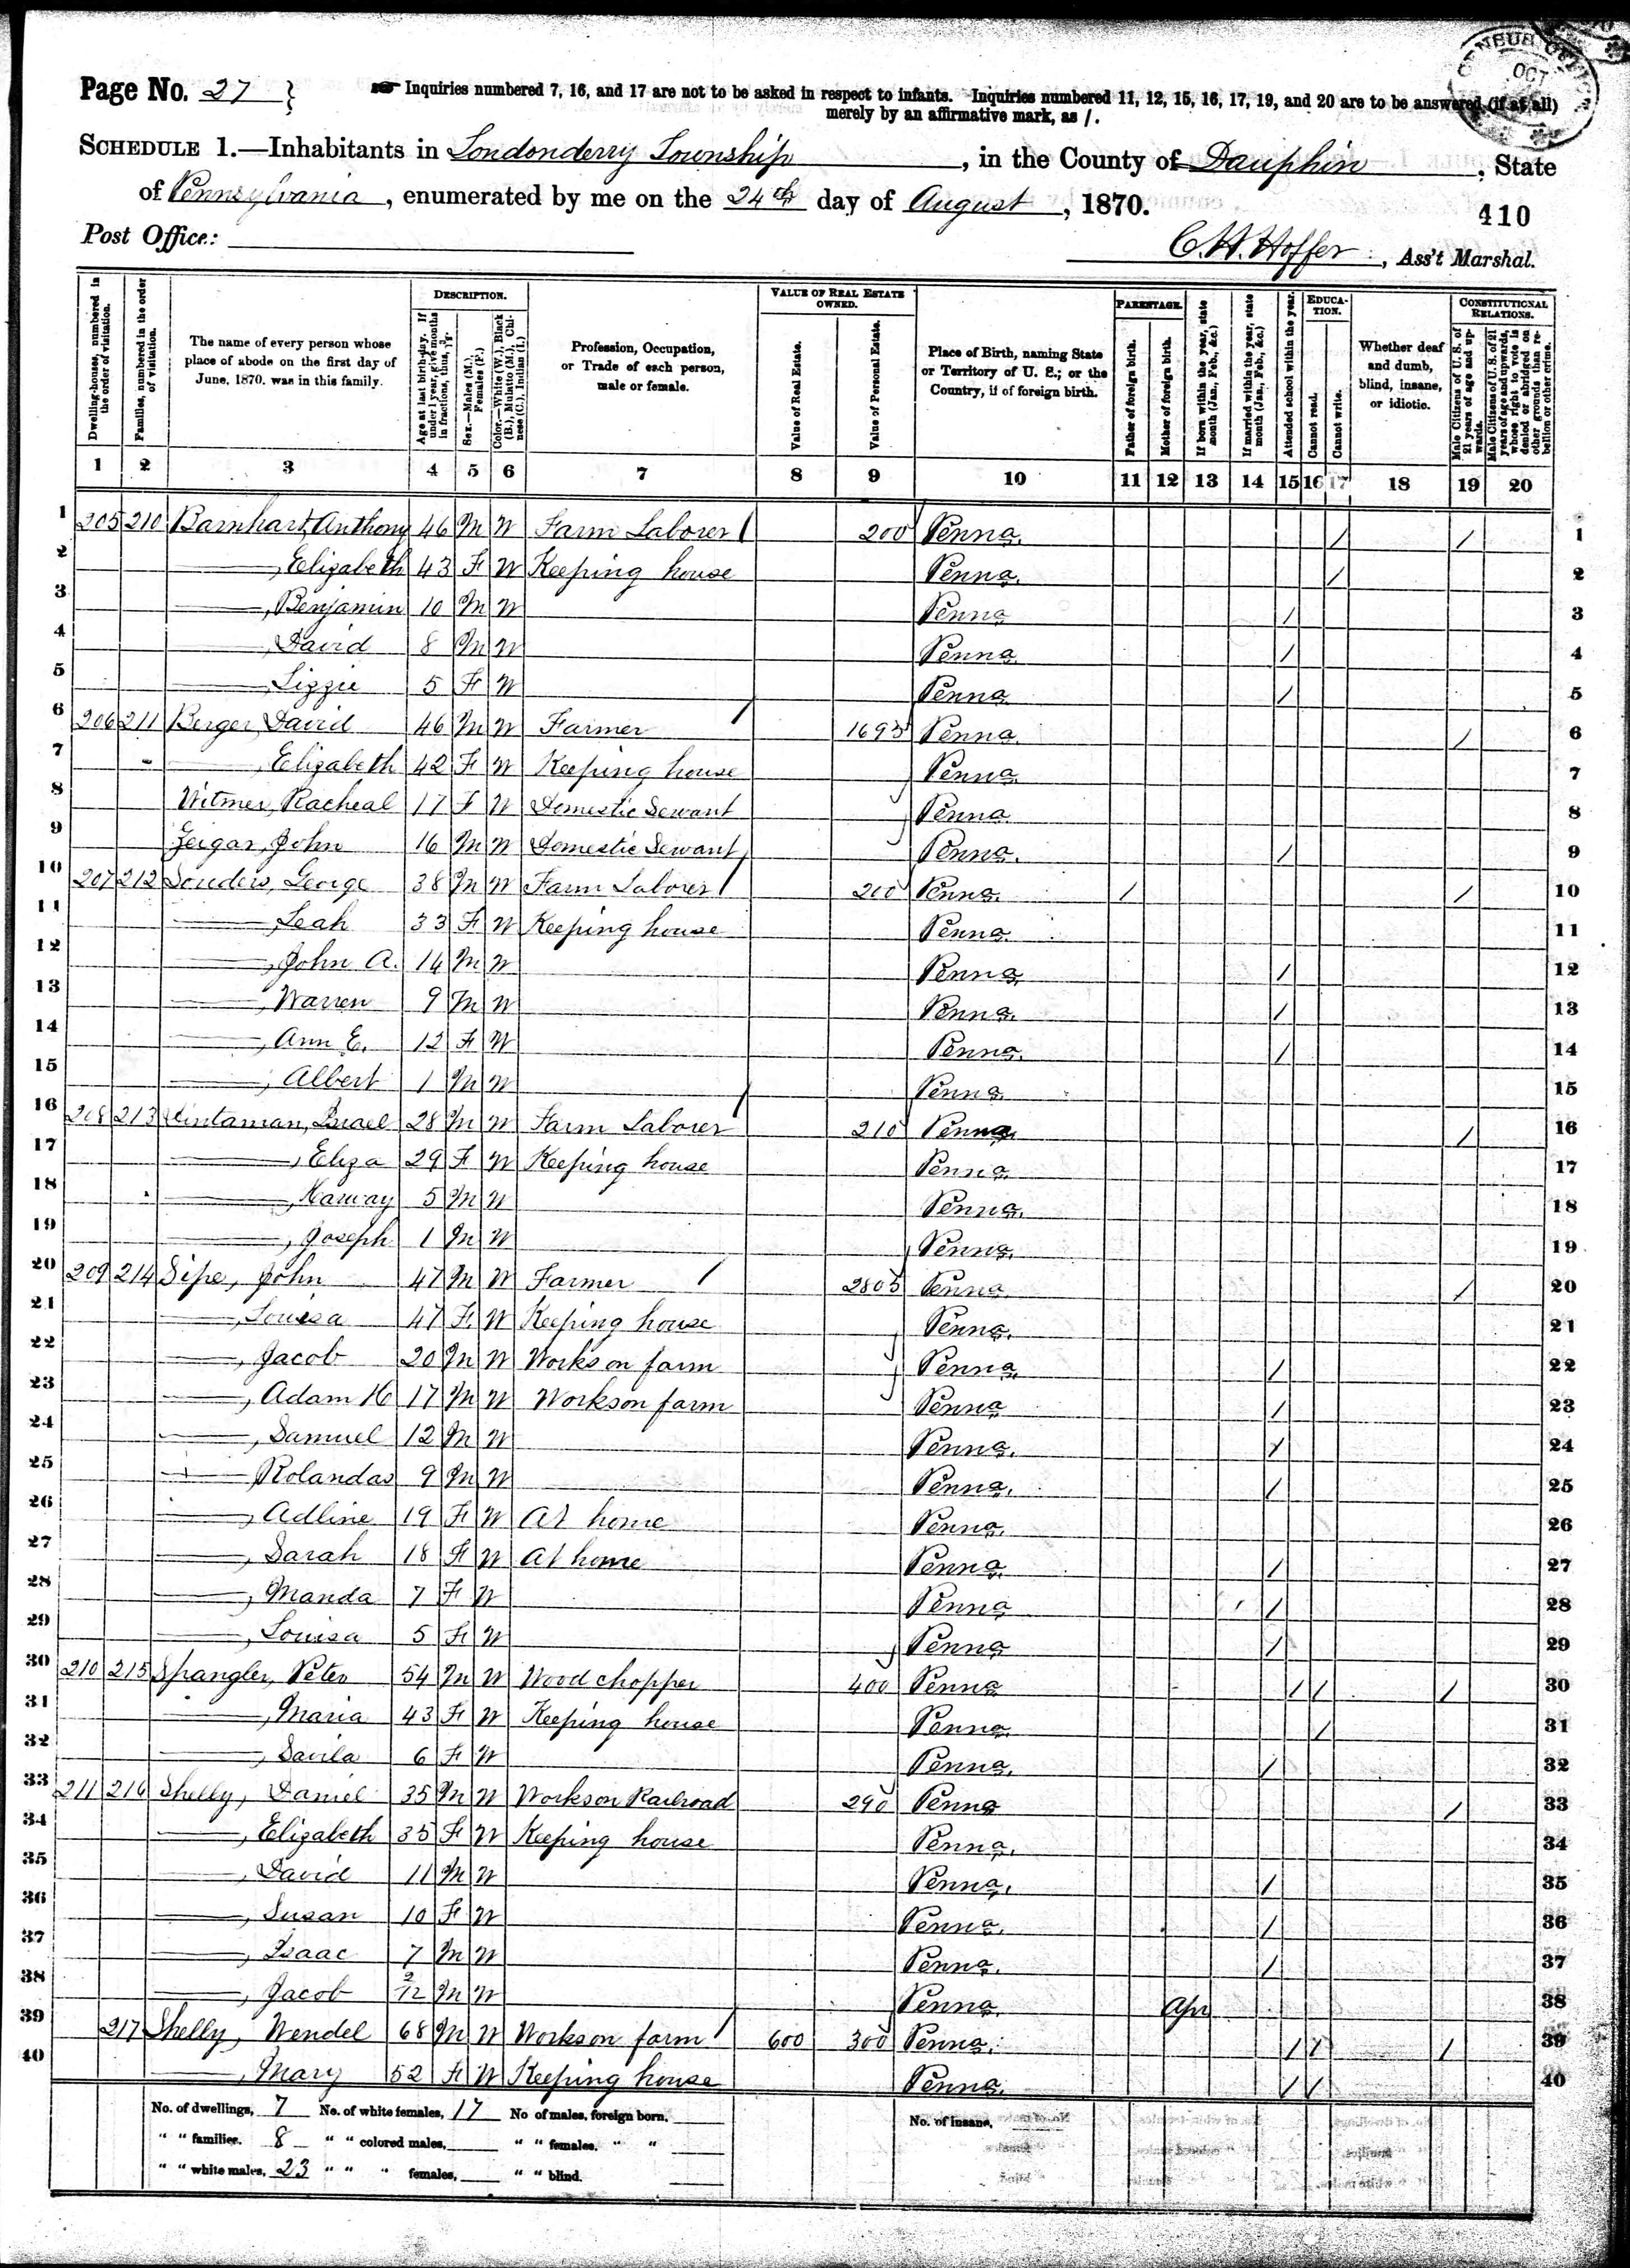 CENSUS OFFICE OCT
Page No. 27 } Inquiries numbered 7, 16, and 17 are not to be asked in respect to infants. Inquiries numbered 11, 12, 15, 16, 17, 19, and 20 are to be answered (if at all)
merely by an affirmative mark, as /.
SCHEDULE 1.—Inhabitants in Londonderry Township, in the County of Dauphin, State
of Pennsylvania, enumerated by me on the 24th day of August, 1870.
410
Post Office:
C. H. Hoffer, Ass't Marshal.
Dwelling-houses, numbered in the order of visitation.
Families, numbered in the order of visitation.
The name of every person whose place of abode on the first day of June, 1870, was in this family.
DESCRIPTION.
Age at last birth-day. If under 1 year, give months in fractions, thus, 3/12.
Sex.—Males (M.), Females (F.)
Color.—White (W.), Black (B.), Mulatto (M.), Chinese (C.), Indian (I.)
Profession, Occupation, or Trade of each person, male or female.
VALUE OF REAL ESTATE OWNED.
Value of Real Estate.
Value of Personal Estate.
Place of Birth, naming State or Territory of U. S.; or the Country, if of foreign birth.
PARENTAGE.
Father of foreign birth.
Mother of foreign birth.
If born within the year, state month (Jan., Feb., &c.)
If married within the year, state month (Jan., Feb., &c.)
Attended school within the year.
EDUCATION.
Cannot read.
Cannot write.
Whether deaf and dumb, blind, insane, or idiotic.
CONSTITUTIONAL RELATIONS.
Male Citizens of U. S. of 21 years of age and upwards.
Male Citizens of U. S. of 21 years of age and upwards, whose right to vote is denied or abridged on other grounds than rebellion or other crime.
1 2 3 4 5 6 7 8 9 10 11 12 13 14 15 16 17 18 19 20
1 205 210 Barnhart, Anthony 46 M W Farm Laborer / 200 Penna. / / 1
2 ——, Elizabeth 43 F W Keeping house Penna. / 2
3 ——, Benjamin 10 M W Penna / 3
4 ——, David 8 M W Penna / 4
5 ——, Lizzie 5 F W Penna / 5
6 206 211 Berger, David 46 M W Farmer / 1695 Penna. / 6
7 ——, Elizabeth 42 F W Keeping house Penna. 7
8 Witmer, Racheal 17 F W Domestic Servant Penna 8
9 Zeigar, John 16 M W Domestic Servant Penna. / 9
10 207 212 Souders, George 38 M W Farm Laborer / 200 Penna. / / 10
11 ——, Leah 33 F W Keeping house Penna. 11
12 ——, John A. 14 M W Penna. / 12
13 ——, Warren 9 M W Penna. / 13
14 ——, Ann E. 12 F W Penna. / 14
15 ——, Albert 1 M W Penna. 15
16 208 213 Israel 28 M W Farm Laborer / 210 Penna. / 16
17 ——, Eliza 29 F W Keeping house Penna. 17
18 ——, Harway 5 M W Penna. 18
19 ——, Joseph 1 M W Penna. 19
20 209 214 Sipe, John 47 M W Farmer / 2805 Penna. / 20
21 ——, Louisa 47 F W Keeping house Penna. 21
22 ——, Jacob 20 M W Works on farm Penna. / 22
23 ——, Adam H 17 M W Works on farm Penna / 23
24 ——, Samuel 12 M W Penna. / 24
25 —— Rolandas 9 M W Penna. / 25
26 ——, Adline 19 F W At home Penna. 26
27 ——, Sarah 18 F W At home Penna. / 27
28 ——, Manda 7 F W Penna / 28
29 ——, Louisa 5 F W Penna / 29
30 210 215 Spangler, Peter 54 M W Wood chopper 400 Penna / / / 30
31 ——, Maria 43 F W Keeping house Penna. / 31
32 ——, Savila 6 F W Penna. / 32
33 211 216 Shelly, Daniel 35 M W Works on Railroad 290 Penna / 33
34 ——, Elizabeth 35 F W Keeping house Penna. 34
35 ——, David 11 M W Penna. / 35
36 ——, Susan 10 F W Penna. / 36
37 ——, Isaac 7 M W Penna. / 37
38 ——, Jacob 2/12 M W Penna. Apr 38
39 217 Shelly, Wendel 68 M W Works on farm / 600 300 Penna. / / / 39
40 ——, Mary 52 F W Keeping house Penna. / / 40
No. of dwellings, 7 No. of white females, 17 No of males, foreign born, No. of insane,
" " families, 8 " " colored males, " " females, " "
" " white males, 23 " " " females, " " blind.